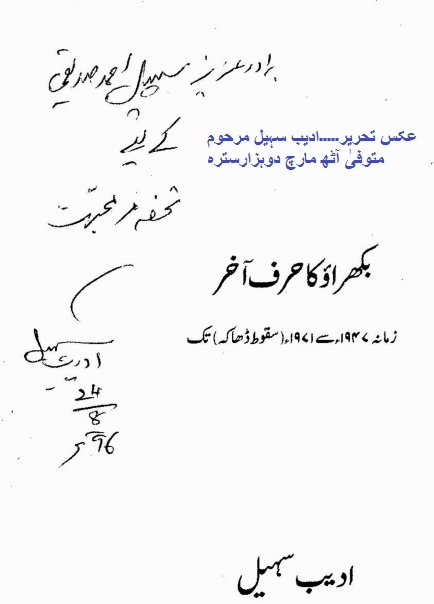 برادر عزیز سہیل احمد صدیقی
کے لیے
عکس تحریر.....ادیب سہیل مرحوم
متوفیٰ آٹھ مارچ دوہزارسترہ
تحفہ مہر و محبت
بکھراؤ کا حرف آخر
زمانہ ۱۹۴۷ء سے ۱۹۷۱ء (سقوط ڈھاکہ) تک
ادیب سہیل
24
8
96ء
ادیب سہیل